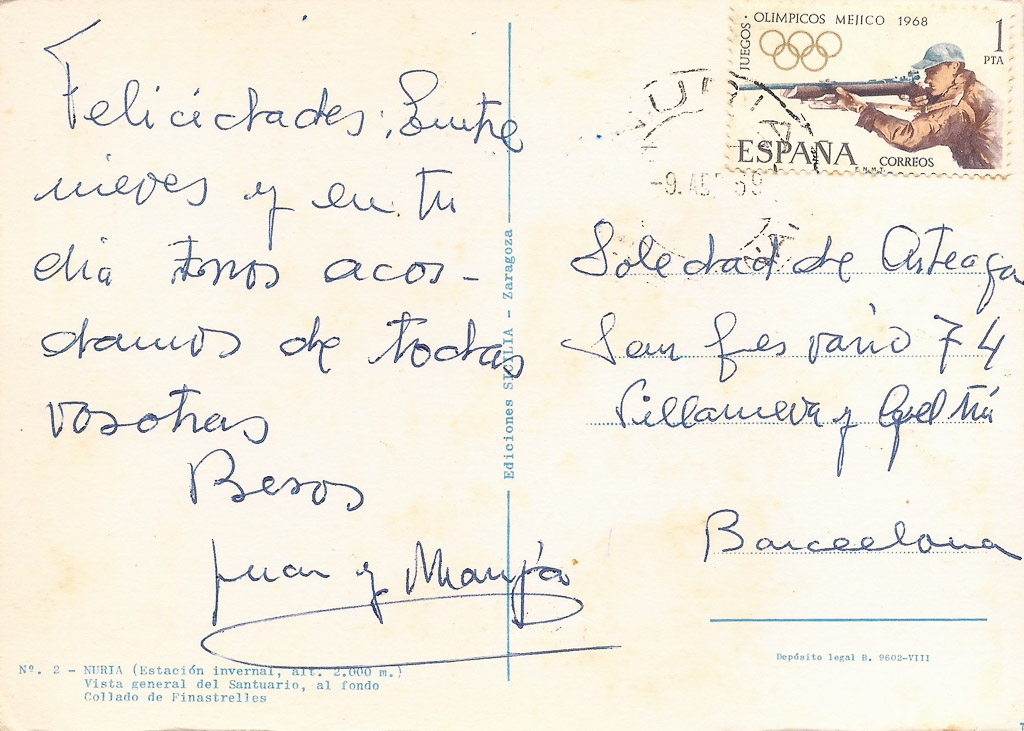 Felicidades; Entre
nieves y en tu
día nos acor-
damos de todas
vosotras
Besos
Juan y
JUEGOS · OLIMPICOS MEJICO 1968
1
PTA
ESPAÑA CORREOS
F.N.M.T.
NURIA
-9. AB 69
Soledad de Arteaga
San Gervasio 74
Villanueva y Geltrú
Barcelona
Ediciones SICILIA - Zaragoza
Nº. 2 - NURIA (Estación invernal, alt. 2.000 m.)
Vista general del Santuario, al fondo
Collado de Finastrelles
Depósito legal B. 9602-VIII